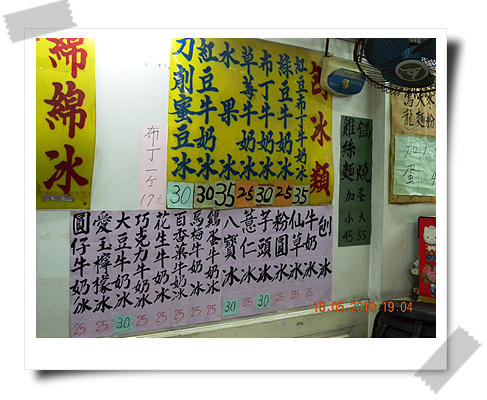 綿綿冰
包冰類
紅豆布丁牛奶冰 35
綠豆牛奶冰 25
布丁牛奶冰 30
草莓牛奶冰 25
水果冰 35
紅豆牛奶冰 30
刀削蜜豆冰 30
布丁一个
17元
鍋燒蛋大55
雞絲麵加小45
加大
蛋
刨冰
牛奶冰 25
仙草冰 25
粉圓冰 25
芋頭冰 30
薏仁冰 25
八寶冰 30
雞蛋牛奶冰 25
烏梅牛奶冰 25
百香菓牛奶冰 25
花生牛奶冰 25
巧克力牛奶冰 25
大豆牛奶冰 30
愛玉檸檬冰 25
圓仔牛奶冰 25
19:04